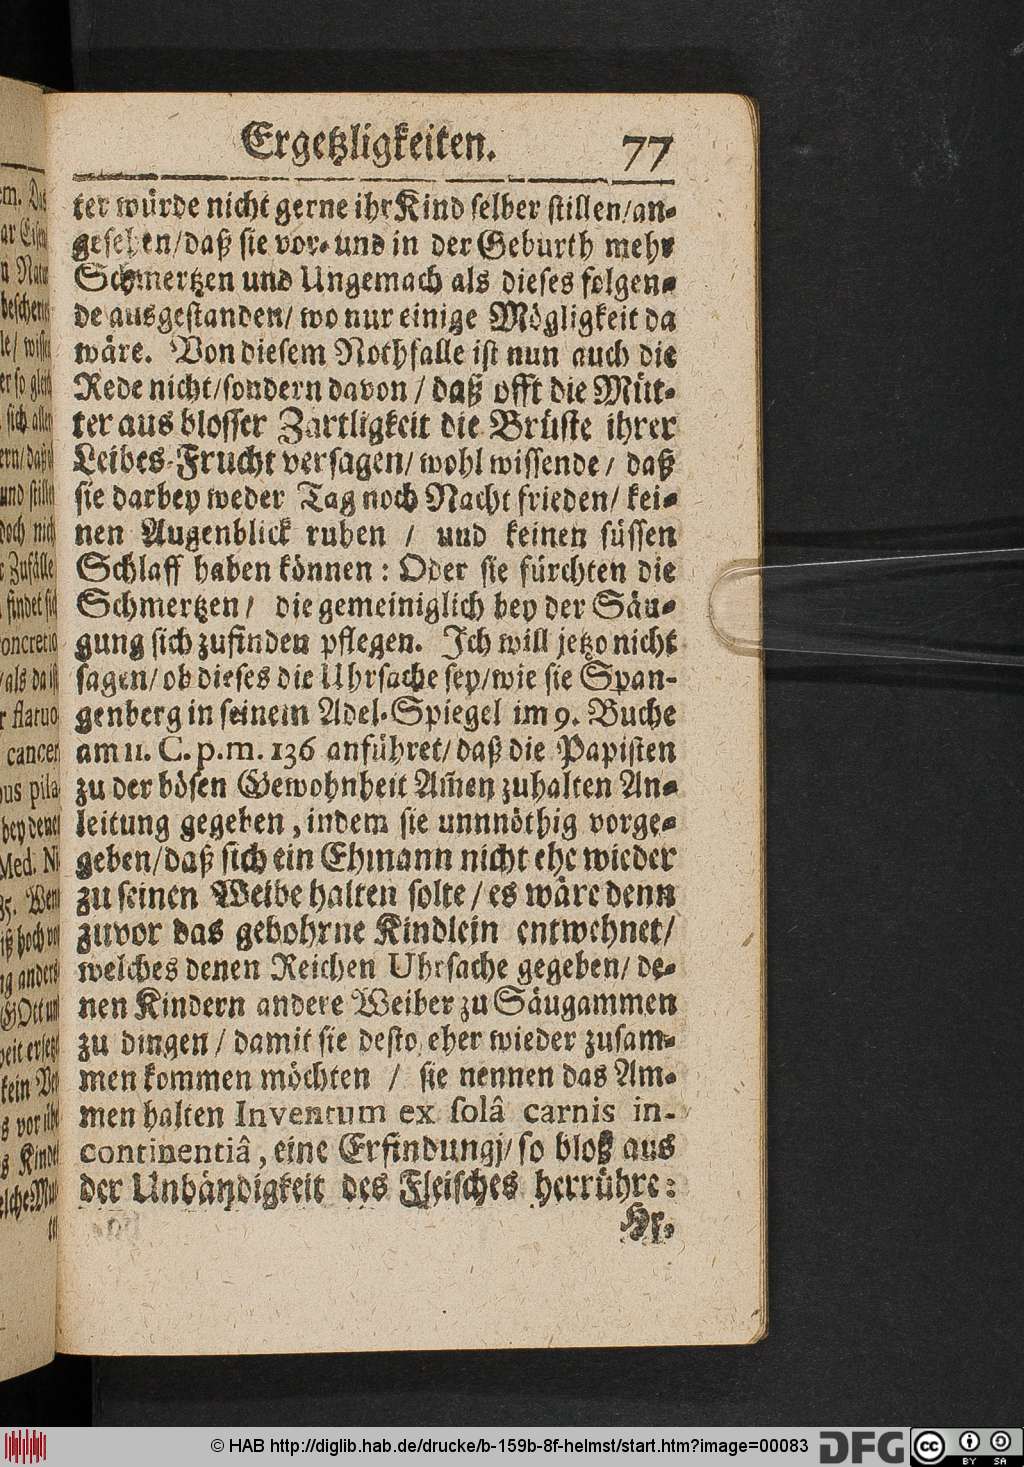 Ergetzligkeiten. 77
ter würde nicht gerne ihr Kind selber stillen/an-
gesehen/daß sie vor- und in der Geburth mehr
Schmertzen und Ungemach als dieses folgen-
de ausgestanden/ wo nur einige Mögligkeit da
wäre. Von diesem Nothfalle ist nun auch die
Rede nicht/sondern davon / daß offt die Müt-
ter aus blosser Zartligkeit die Brüste ihrer
Leibes-Frucht versagen/ wohl wissende / daß
sie darbey weder Tag noch Nacht frieden/ kei-
nen Augenblick ruhen / und keinen süssen
Schlaff haben können : Oder sie fürchten die
Schmertzen / die gemeiniglich bey der Säu-
gung sich zufinden pflegen. Ich will jetzo nicht
sagen/ ob dieses die Uhrsache sey/wie sie Span-
genberg in seinem Adel-Spiegel im 9. Buche
am 11. C. p. m. 136 anführet/ daß die Papisten
zu der bösen Gewohnheit Am̃en zuhalten An-
leitung gegeben, indem sie unnnöthig vorge-
geben/daß sich ein Ehmann nicht ehe wieder
zu seinen Weibe halten solte / es wäre denn
zuvor das gebohrne Kindlein entwehnet/
welches denen Reichen Uhrsache gegeben/ de-
nen Kindern andere Weiber zu Säugammen
zu dingen / damit sie desto eher wieder zusam-
men kommen möchten / sie nennen das Am-
men halten Inventum ex solâ carnis in-
continentiâ, eine Erfindungj/ so bloß aus
der Unbändigkeit des Fleisches herrühre:
Hr.
em. Das
n Natur
le/ wissen
er so gleich
sich allen
und stillen
doch nicht
r Zufälle
findet sich
concretio
/als da ist
r flatuo
cancer
bus pila
bey denen
Med. Ni
85. Wenn
ng anders
GOtt und
kein Ver
s vor übe
s Kindes
elche Mut
ter
© HAB http://diglib.hab.de/drucke/b-159b-8f-helmst/start.htm?image=00083 DFG cc BY SA